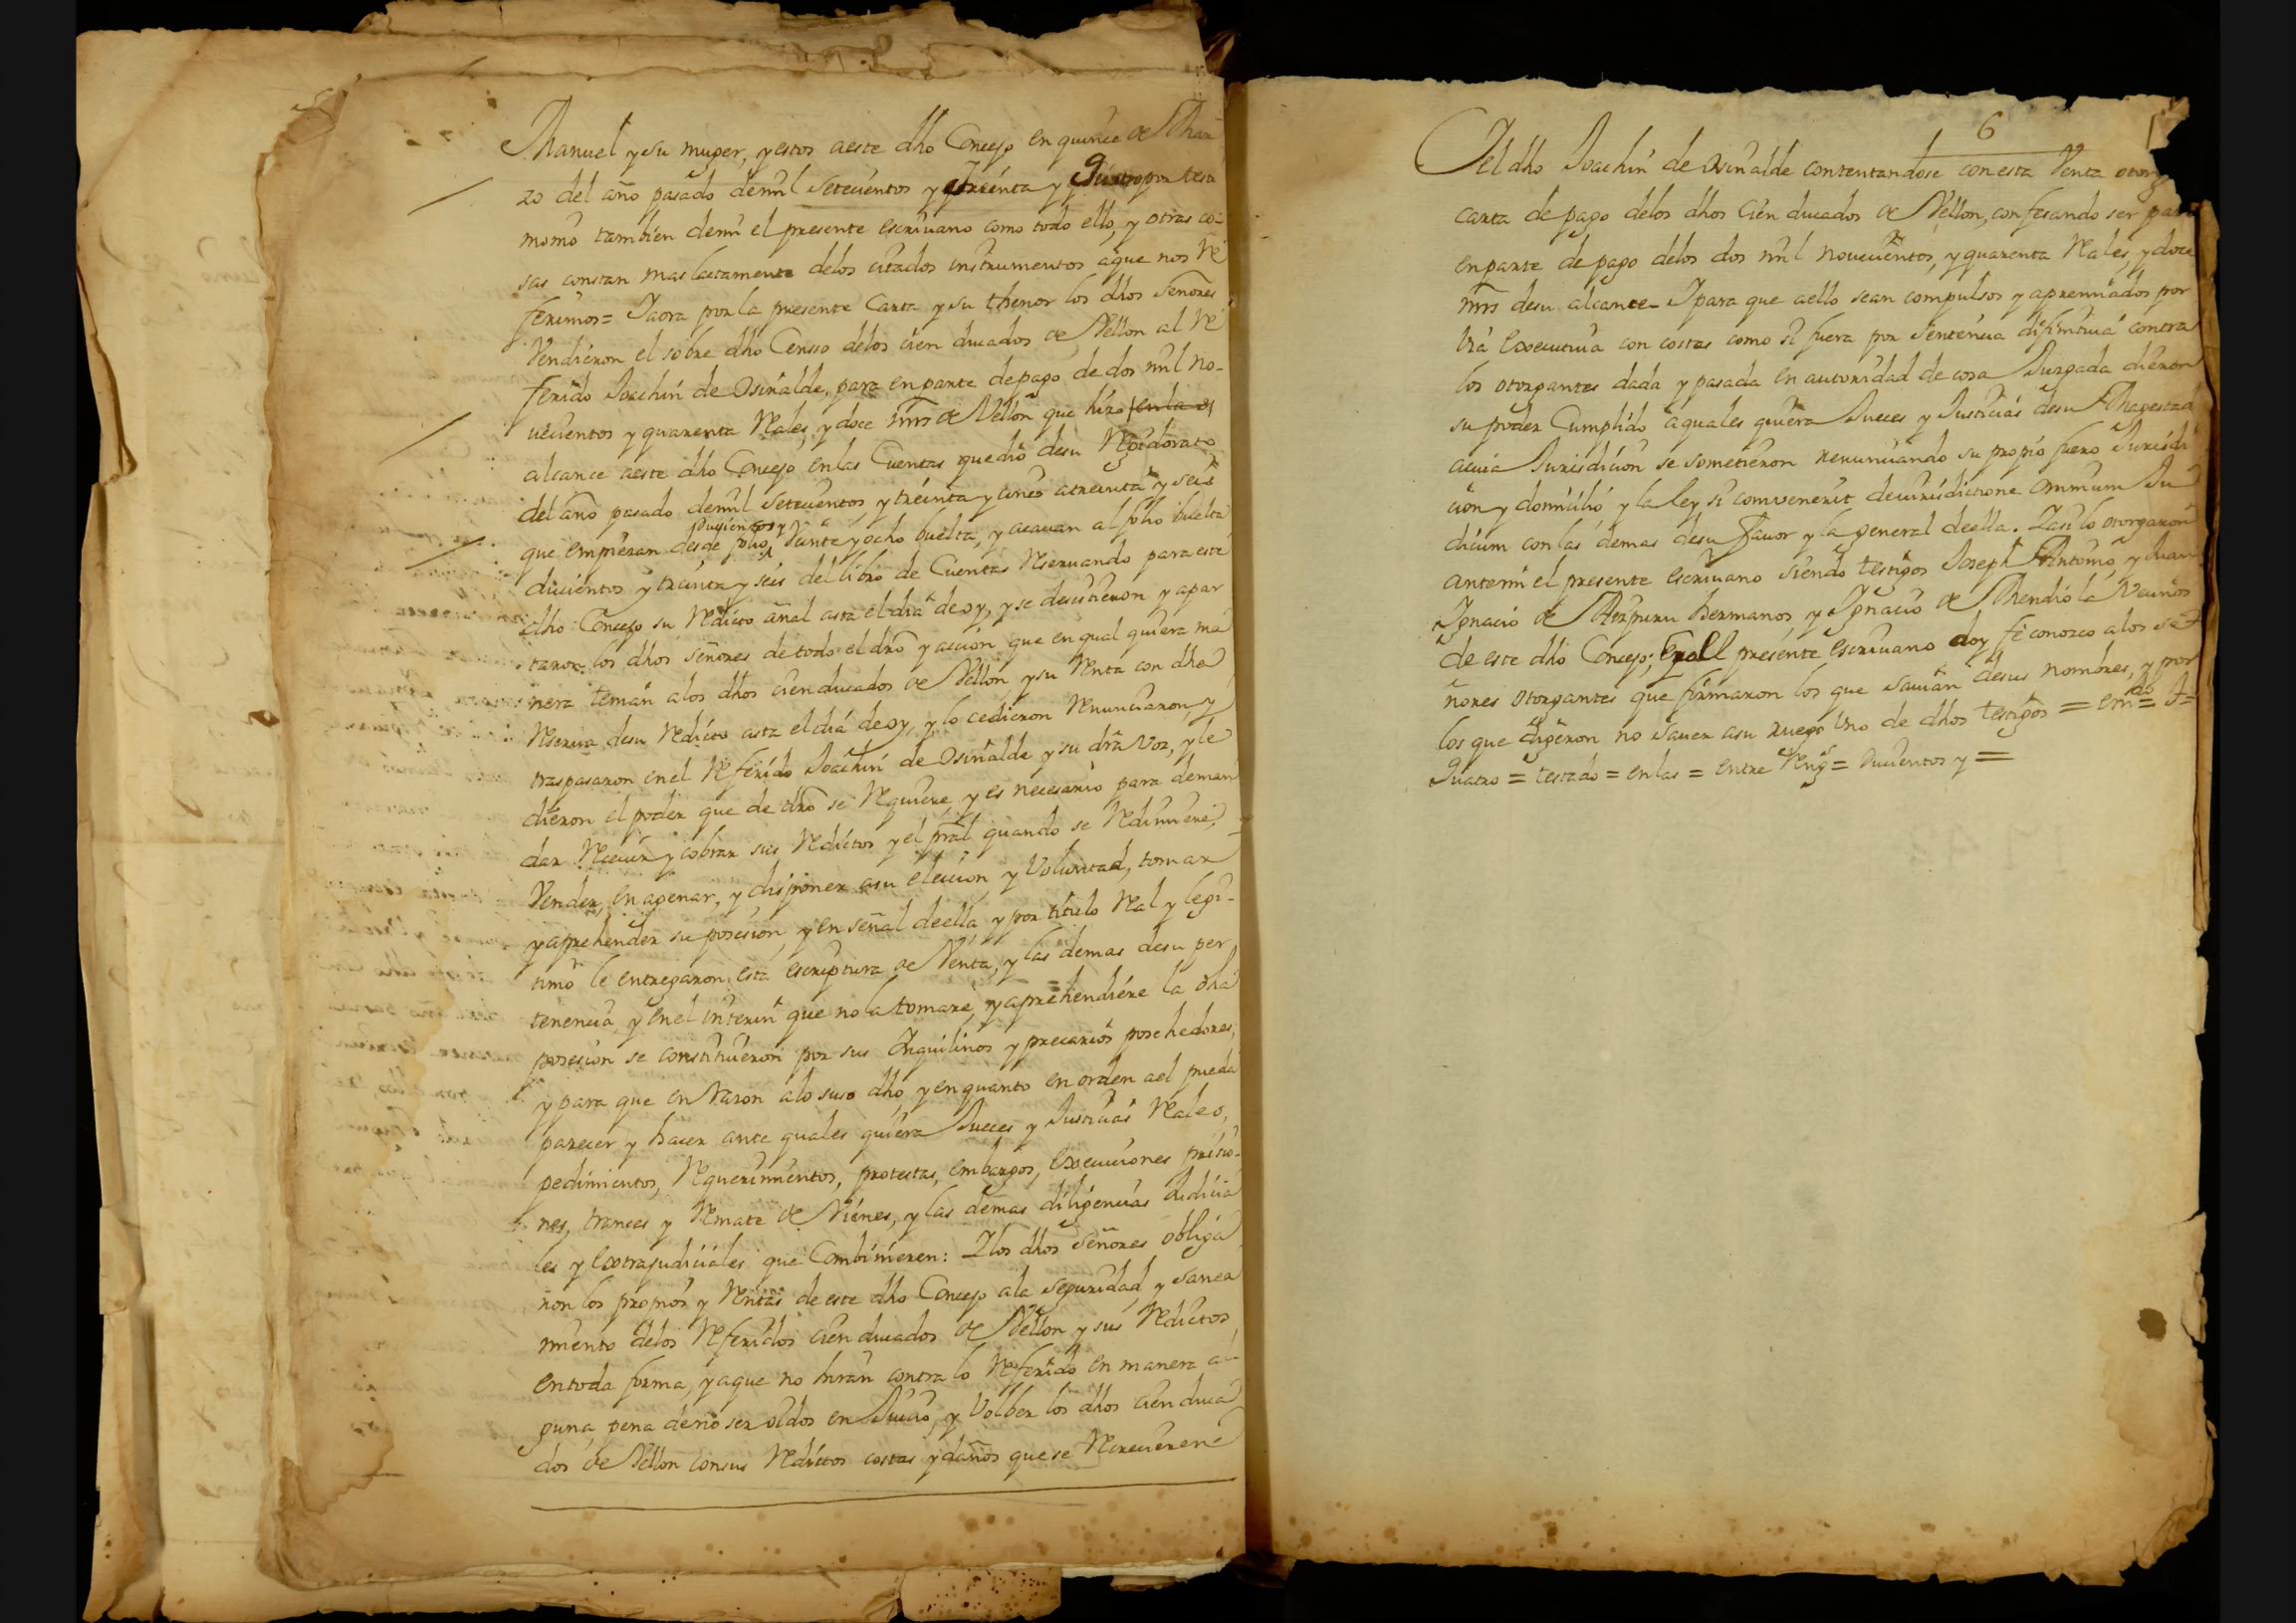 Manuel y su muger, y estos aeste dho Concejo en quince de Mar
zo del año pasado demil setecientos y treinta y quatro por testi
monio tambien demi el presente escriuano como todo ello, y otras co-
sas constan mas laetamente delos citados instrumentos aque nos Re
ferimos= Iaora por la presente Carta y su thenor los dhos Señores
Vendieron el sobre dho Censso delos cien ducados de Vellon al Re
ferido Joachin de Osinalde, para en parte depago de dos mil no-
uecientos y quarenta Reales, y doce mrs de Vellon que hizo en las
alcance aeste dho Concejo en las Cuentas que dio desu Regidorato
del año pasado demil setecientos y treinta y cinco atreinta y seis
que empiezan desde folio ducientos y Veinte y ocho buelta, y acauan al folio buelta
ducientos y treinta y seis del libro de Cuentas Reseruando para este
dho Concejo su Redicto añal asta el dia de oy, y se desistieron y apar
taron los dhos señores de todo el dro y accion que en qual quiera ma
nera tenian alos dhos cien ducados de Vellon y su Renta con dha
Reserua desu Redicto asta el dia de oy, y lo cedieron Renunciaron, y
traspasaron en el Referido Joachin de Osinalde y su dra Voz, y le
dieron el poder que de dro se Requiere, y es necesario para deman
dar Receuir y cobrar sus Redictos y el pral quando se Redimiere,
Vender, en agenar, y disponer asu eleccion y Voluntad, tomar
y aprehender su posesion, y en señal deella, y por titulo Real y legi-
timo le entregaron esta escriptura de Venta, y las demas desu per
tenencia, y en el interin que no la tomare, y aprehendiere la dha
posesion se constituieron por sus Inquilinos y precarios posehedores,
y para que en Razon alo suso dho y en quanto en orden ael pueda
parecer y hacer ante quales quiera Jueces y Justicias Reales,
pedimientos, Requerimientos, protestas, embargos, execuciones prisio-
nes, trances y Remate de Vienes, y las demas diligencias Judicia
les y extrajudiciales que Combinieren: Y los dhos señores obliga
ron los propios y Rentas de este dho Concejo ala seguridad, y sanea
miento delos Referidos cien ducados de Vellon y sus Redictos
en toda forma, y aque no hiran contra lo Referido en manera al
guna, pena deno ser oidos en Juicio, y Volber los dhos cien duca
dos de Vellon consus Redictos costas y daños que se Recrecieren
6
Iel dho Joachin de Osinalde contentandose con esta Venta otorgo
carta de pago delos dhos cien ducados de Vellon, confesando ser para
en parte de pago delos dos mil nouecientos, y quarenta Reales, y doce
mrs desu alcance- Ipara que aello sean compulsos y apremiados por
Via executiua con costas como si fuera por sentencia difinitiua contra
los otorgantes dada y pasada en autoridad de cosa Juzgada dieron
su poder Cumplido aquales quiera Jueces y Justicias desu Magestad
acuia Jurisdicion se sometieron renunciando su propio fuero Jurisdi
cion y domicilio y la ley si convenerit de iurisdictione Omnium Ju
dicum con las demas desu fauor y la general deella. Iasi lo otorgaron
antemi el presente escriuano siendo testigos Joseph Antonio, y Juan
Ignacio de Aizpuru hermanos, y Ignacio de Mendiola Vecinos
de este dho Concejo; E yo el presente escriuano doy fe conozco alos se
ñores otorgantes que firmaron los que sauian desus nombres, y por
los que digeron no sauer asu ruego Vno de dhos testigos = emdo= t=
Quatro = testado = enlas = entre Reng= ducientos y =